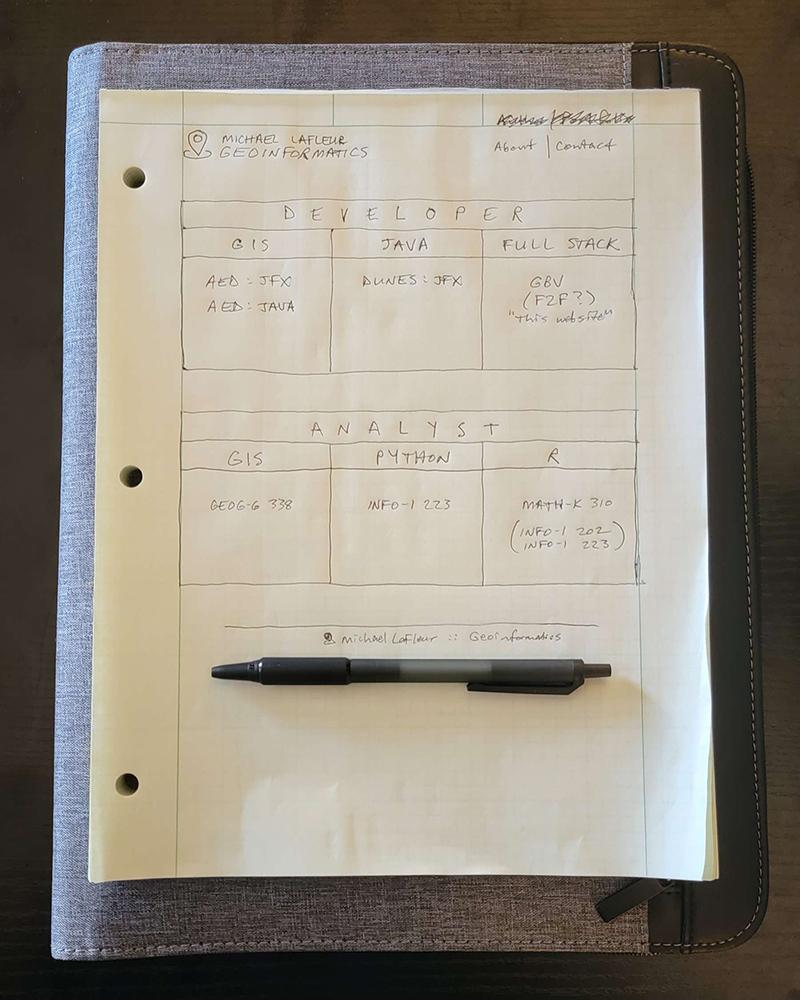 MICHAEL LAFLEUR
GEOINFORMATICS
About | Contact
DEVELOPER
GIS JAVA FULL STACK
AED: JFX DUNES: JFX GBV
AED: JAVA (F2F?)
"This website"
ANALYST
GIS PYTHON R
GEOG-G 338 INFO-I 223 MATH-K 310
(INFO-I 202
INFO-I 223)
Michael LaFleur :: Geoinformatics